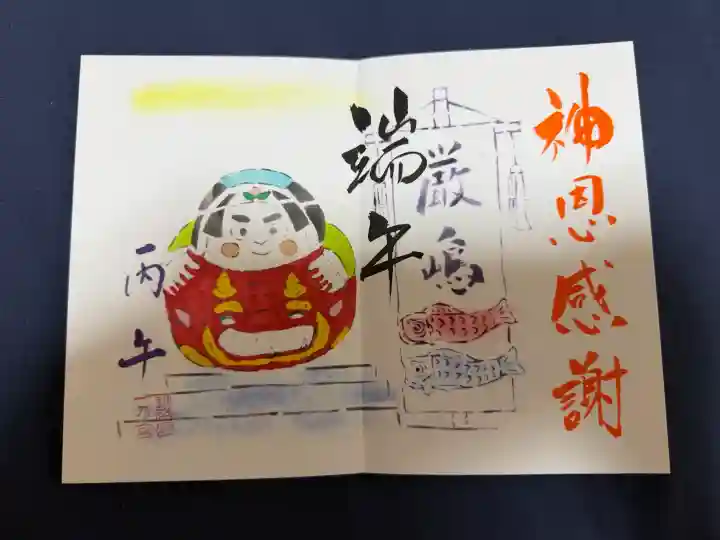 神恩感謝
厳嶋
端午
丙午